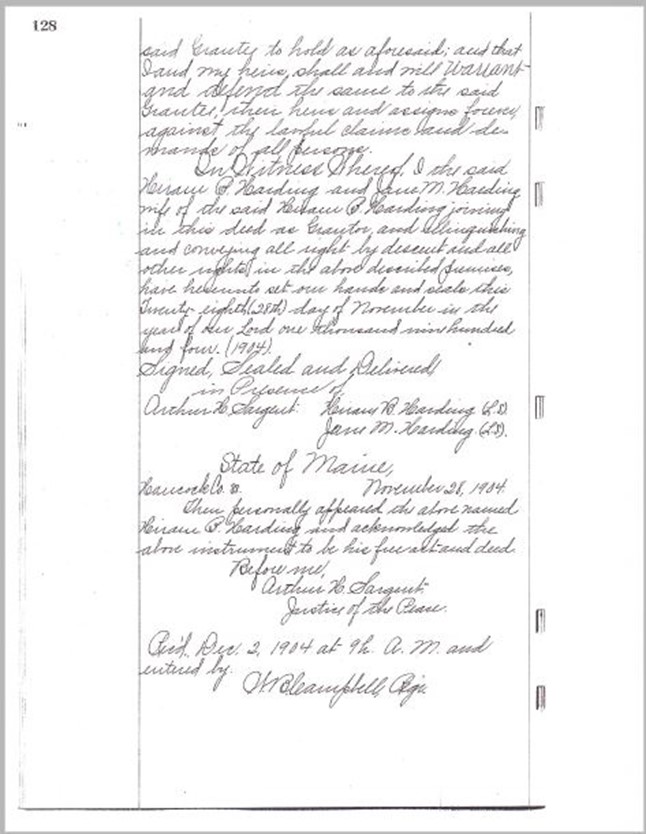 128
said Grantees to hold as aforesaid; and that
I and my heirs, shall and will Warrant
and defend the same to the said
Grantees, their heirs and assigns forever,
against the lawful claims and de-
mands of all persons.
In Witness Whereof, I the said
Hiram B. Harding and Jane M. Harding
wife of the said Hiram B. Harding joining
in this deed as Grantor, and relinquishing
and conveying all right by descent and all
other rights in the above described premises,
have hereunto set our hands and seals this
Twenty-eighth (28th) day of November in the
year of our Lord one thousand nine hundred
and four. (1904).
Signed, Sealed and Delivered
in Presence of
Arthur H. Sargent. Hiram B. Harding (LS).
Jane M. Harding (LS).
State of Maine,
Hancock Co. ss. November 28, 1904.
Then personally appeared the above named
Hiram B. Harding and acknowledged the
above instrument to be his free act and deed
Before me,
Arthur H. Sargent.
Justice of the Peace.
Rec'd. Dec. 2, 1904 at 9h. A. M. and
entered by
W. B. Campbell, Reg.